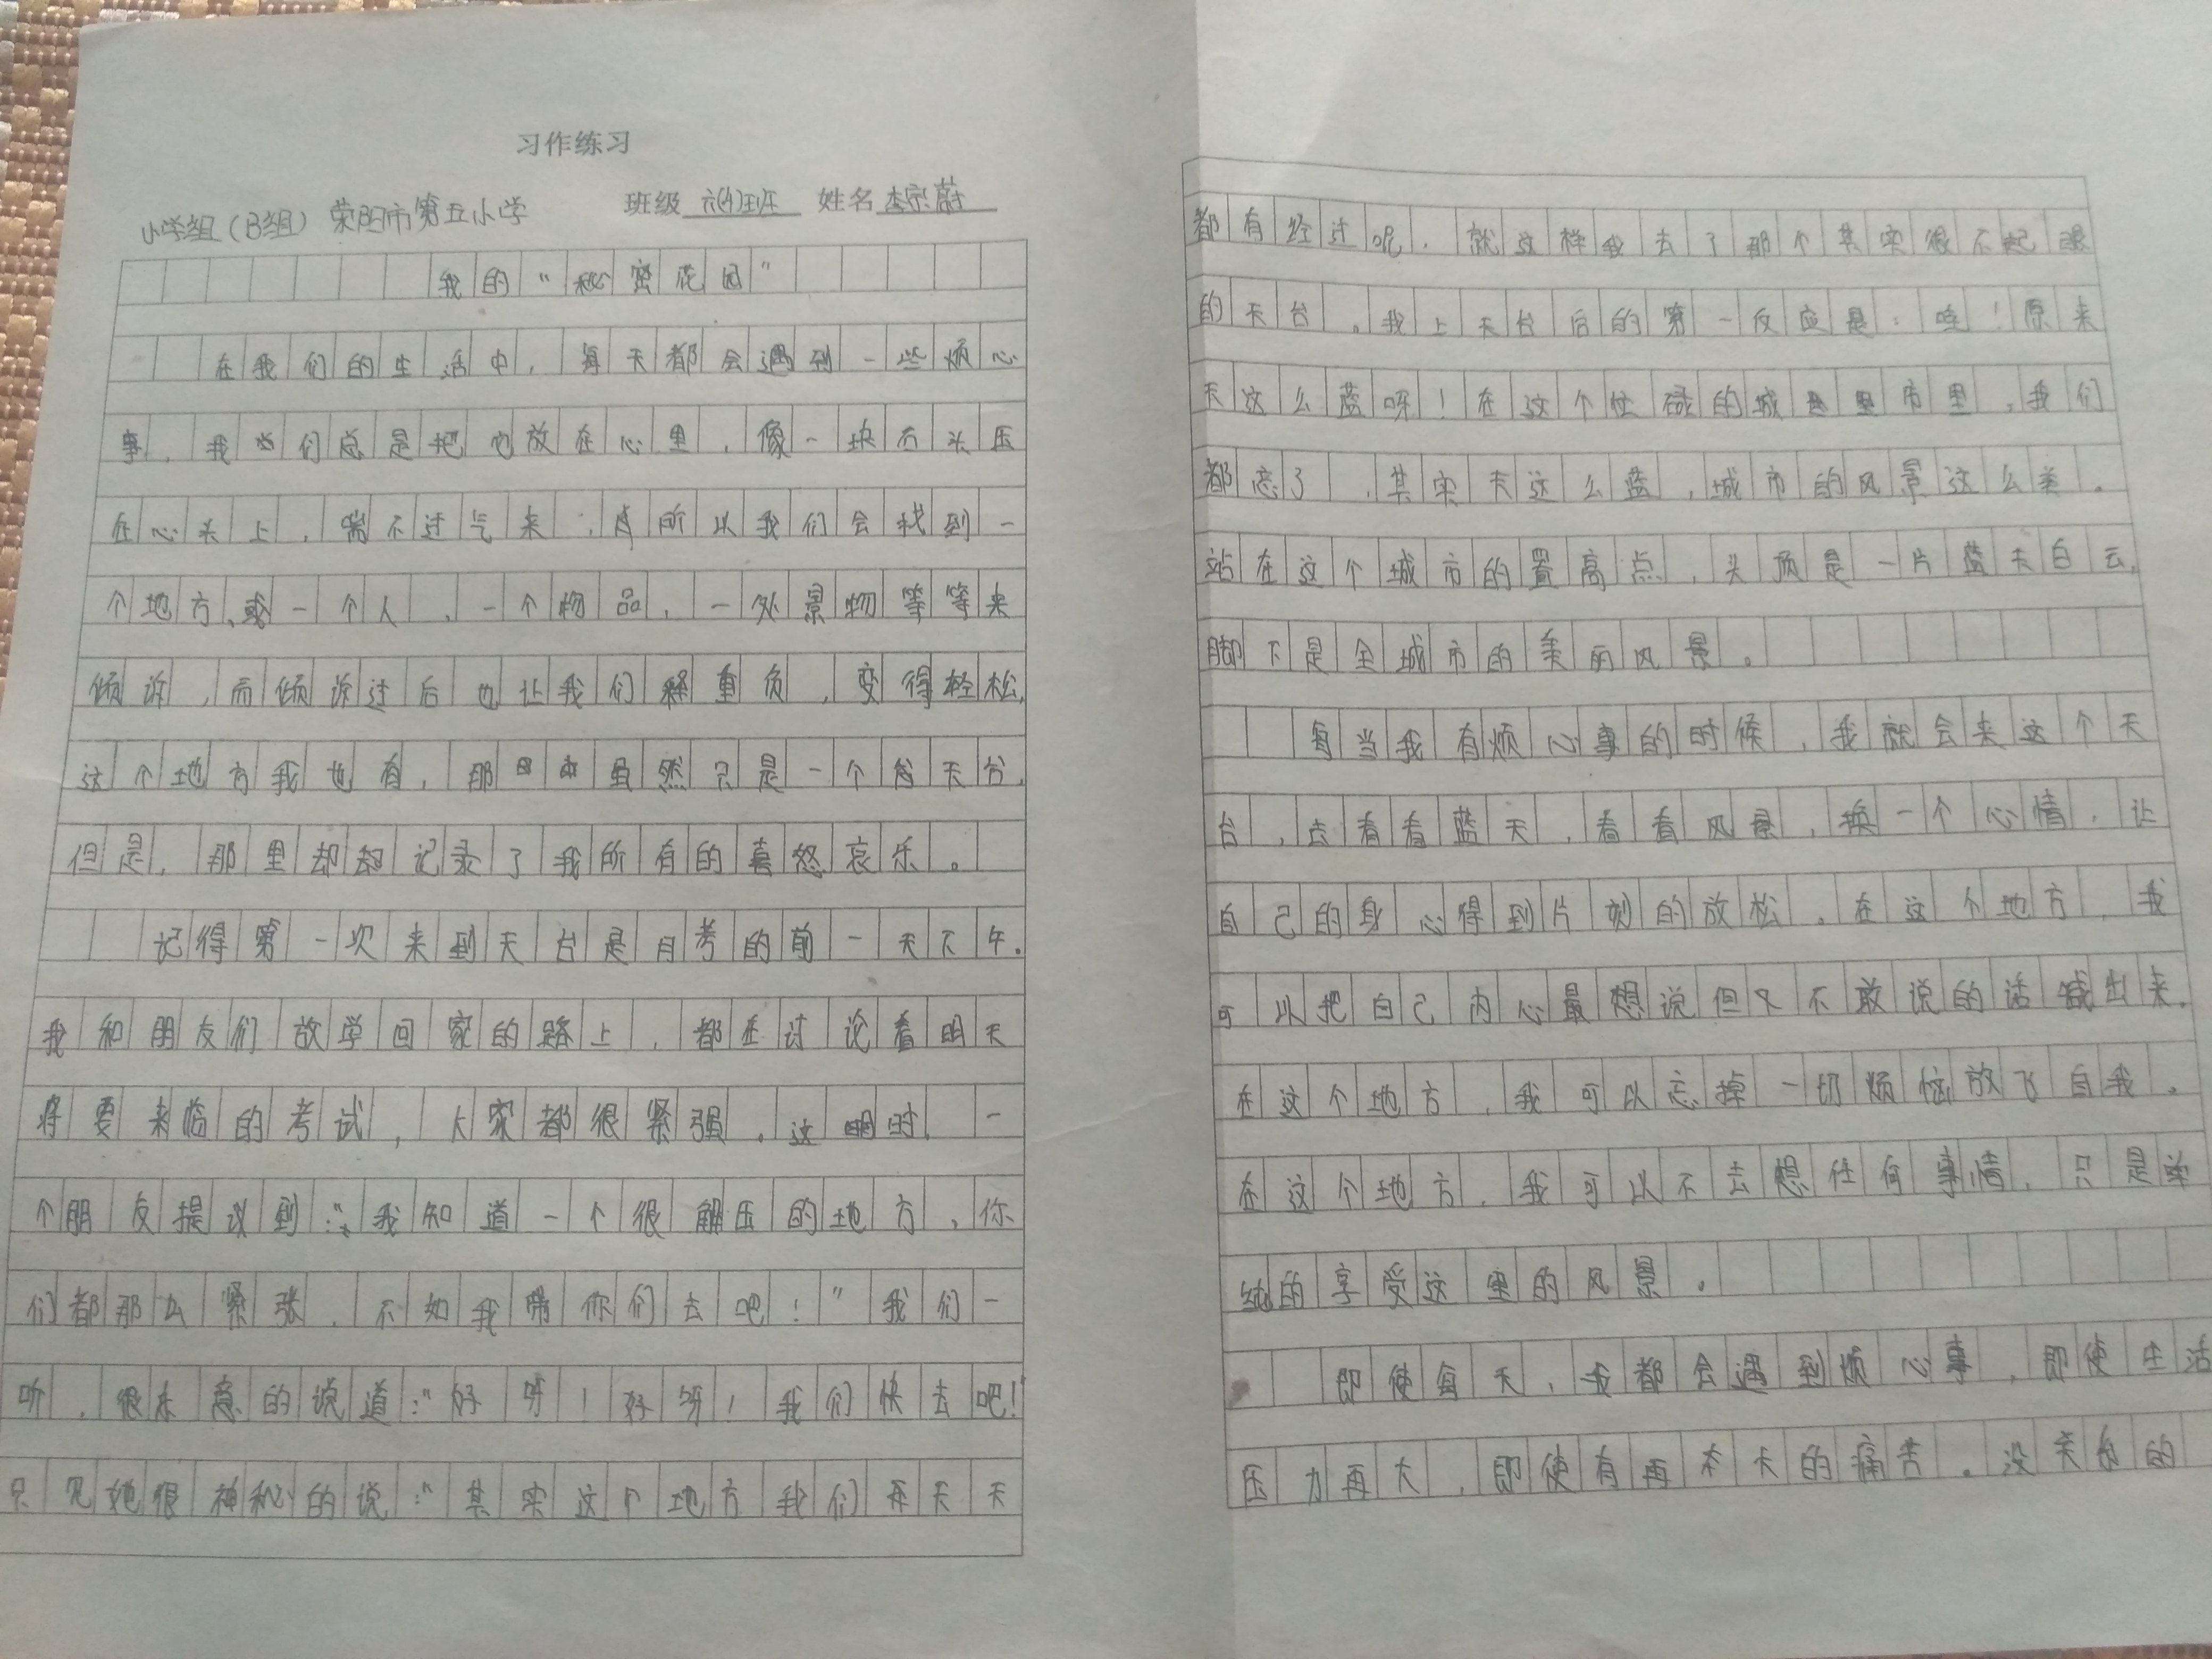 习作练习
小学组（B组） 荥阳市第五小学 班级 六(4)班 姓名 李宗蔚
我的“秘密花园”
在我们的生活中，每天都会遇到一些烦心
事，我们总是把它放在心里，像一块石头压
在心头上，喘不过气来，所以我们会找到一
个地方、或一个人、一个物品，一处景物等等来
倾诉，而倾诉过后也让我们释重负，变得轻松，
这个地方我也有，那虽然只是一个天台，
但是，那里却记录了我所有的喜怒哀乐。
记得第一次来到天台是月考的前一天下午。
我和朋友们放学回家的路上，都在讨论着明天
将要来临的考试，大家都很紧强。这时，一
个朋友提议到：“我知道一个很解压的地方，你
们都那么紧张，不如我带你们去吧！”我们一
听，很未意的说道：“好呀！好呀！我们快去吧！”
只见她很神秘的说：“其实这个地方我们天天
都有经过呢，就这样我去了那个其实很不起眼
的天台。我上天台后的第一反应是：哇！原来
天这么蓝呀！在这个忙碌的城市里，我们
都忘了，其实天这么蓝，城市的风景这么美。
站在这个城市的置高点，头顶是一片蓝天白云，
脚下是全城市的美丽风景。
每当我有烦心事的时候，我就会来这个天
台，去看看蓝天，看看风景，换一个心情，让
自己的身心得到片刻的放松。在这个地方，我
可以把自己内心最想说但又不敢说的话喊出来。
在这个地方，我可以忘掉一切烦恼放飞自我。
在这个地方，我可以不去想任何事情，只是单
纯的享受这里的风景。
即使每天，我都会遇到烦心事，即使生活
压力再大，即使有再大的痛苦。没关系的